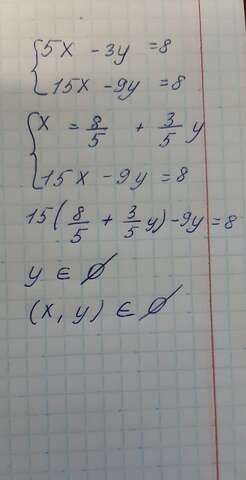 5x - 3y = 8
15x - 9y = 8
x = 8/5 + 3/5 y
15x - 9y = 8
15(8/5 + 3/5 y) - 9y = 8
y ∈ ∅
(x, y) ∈ ∅